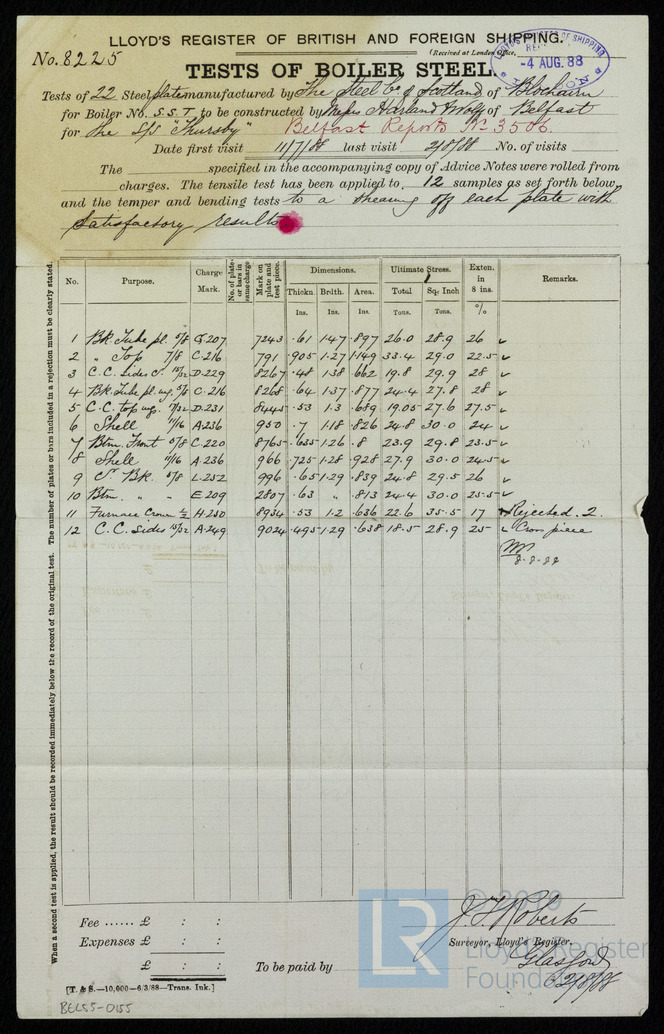 LLOYD'S REGISTER OF BRITISH AND FOREIGN SHIPPING.
No. 8225
(Received at London Office,
LLOYD'S REGISTER OF SHIPPING
-4 AUG. 88
LONDON
TESTS OF BOILER STEEL.
Tests of 22 Steel plates manufactured by The Steel Co of Scotland of Blochairn
for Boiler No. S.S.T. to be constructed by Messrs Harland & Wolff of Belfast
for the S/S "Thursby" Belfast Reports No 3506.
Date first visit 11/7/88 last visit 2/8/88 No. of visits
The specified in the accompanying copy of Advice Notes were rolled from
charges. The tensile test has been applied to 12 samples as set forth below,
and the temper and bending tests to a shearing off each plate with
Satisfactory results
No. Purpose. Charge Mark. No. of plates or bars in same charge Mark on plate and test piece. Dimensions. Ultimate Stress. Exten. in 8 ins. Remarks.
Thickn. Brdth. Area. Total Sq. Inch
Ins. Ins. Ins. Tons. Tons. %
1 Bk. Tube pl. 5/8 C.207 7243 .61 1.47 .897 26.0 28.9 26
2 " Top 7/8 C.216 791 .905 1.27 1.149 33.4 29.0 22.5
3 C.C. Sides 15/32 D.229 8267 .48 1.38 .662 19.8 29.9 28
4 Bk. Tube pl. 5/8 C.216 8268 .64 1.37 .877 24.4 27.8 28
5 C.C. top 17/32 D.231 8445 .53 1.3 .689 19.05 27.6 27.5
6 Shell 11/16 A.236 950 .7 1.18 .826 24.8 30.0 24
7 Btm. Front 5/8 C.220 8765 .635 1.26 .8 23.9 29.8 23.5
8 Shell 11/16 A.236 966 .725 1.28 .928 27.9 30.0 24.5
9 Bk. 5/8 L.252 996 .65 1.29 .839 24.8 29.5 26
10 Btm. " " E.209 2807 .63 " .813 24.4 30.0 25.5
11 Furnace Crown 1/2 H.250 8934 .53 1.2 .636 22.6 35.5 17 Rejected. 2.
12 C.C. Sides 15/32 A.249 9024 .495 1.29 .638 18.5 28.9 25 Cross piece
8-8-88
The number of plates or bars included in a rejection must be clearly stated.
When a second test is applied, the result should be recorded immediately below the record of the original test.
Fee ...... £ : :
Expenses £ : :
£ : :
To be paid by
J. T. Roberts
Surveyor, Lloyd's Register.
Glasgow
2/8/88
[T. & S.—10,000—6/3/88—Trans. Ink.]
BEL55-0155
LR
Lloyd's Register
Foundation